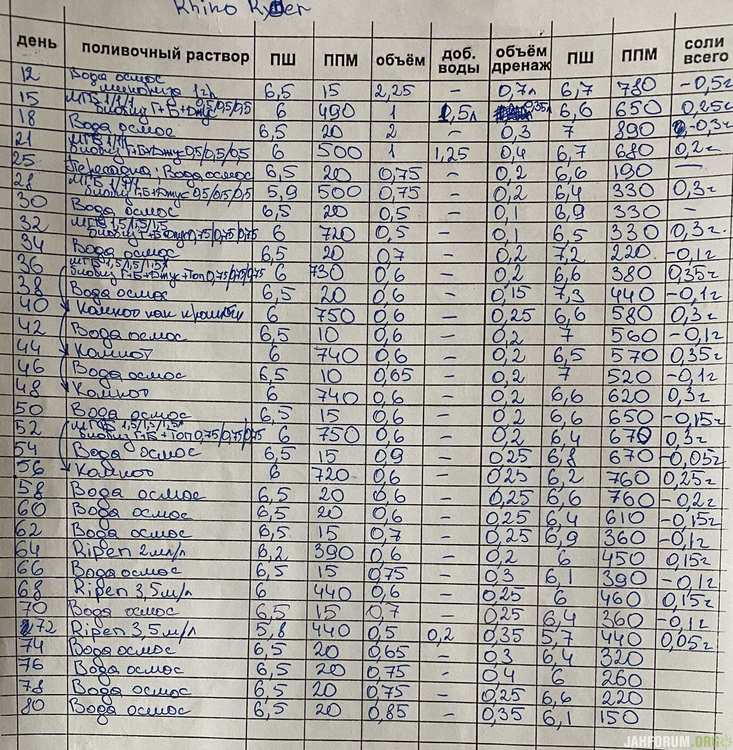 Rhino Ryder
день поливочный раствор ПШ ППМ объём доб. воды объём дренаж ПШ ППМ соли всего
12 Вода осмос 6,5 15 2,25 – 0,7л 6,7 780 -0,5г
15 1/1/1 Г+Б+Джус 0,5/0,5/0,5 6 490 1 1,5л 0,35л 6,6 650 0,25г
18 Вода осмос 6,5 20 2 – 0,3 7 890 -0,3г
21 Г+Б+Джус 0,5/0,5/0,5 6 500 1 1,25 0,4 6,7 680 0,2г
25 Пересадка; Вода осмос 6,5 20 0,75 – 0,2 6,6 190 –
28 Г+Б+Джус 0,5/0,5/0,5 5,9 500 0,75 – 0,2 6,4 330 0,3г
30 Вода осмос 6,5 20 0,5 – 0,1 6,9 330 –
32 1,5/1,5/1,5 Г+Б+Джус 0,75/0,75/0,75 6 720 0,5 – 0,1 6,5 330 0,3г.
34 Вода осмос 6,5 20 0,7 – 0,2 7,2 220 -0,1г
36 1,5/1,5/1,5 Г+Б+Джус+Топ 0,75/0,75/0,75 6 730 0,6 – 0,2 6,6 380 0,35г
38 Вода осмос 6,5 20 0,6 – 0,15 7,3 440 -0,1г
40 Компот как 6 750 0,6 – 0,25 6,6 580 0,3г
42 Вода осмос 6,5 10 0,6 – 0,2 7 560 -0,1г
44 Компот 6 740 0,6 – 0,2 6,5 570 0,35г
46 Вода осмос 6,5 10 0,65 – 0,2 7 520 -0,1г
48 Компот 6 740 0,6 – 0,2 6,6 620 0,3г
50 Вода осмос 6,5 15 0,6 – 0,2 6,6 650 -0,15г
52 1,5/1,5/1,5 Г+Б+Топ 0,75/0,75/0,75 6 750 0,6 – 0,2 6,4 670 0,3г
54 Вода осмос 6,5 15 0,9 – 0,25 6,8 670 -0,05г
56 Компот 6 720 0,6 – 0,25 6,2 760 0,25г
58 Вода осмос 6,5 20 0,6 – 0,25 6,6 760 -0,2г
60 Вода осмос 6,5 20 0,6 – 0,25 6,4 610 -0,15г
62 Вода осмос 6,5 15 0,7 – 0,25 6,9 360 -0,1г
64 Ripen 2мл/л 6,2 390 0,6 – 0,2 6 450 0,15г
66 Вода осмос 6,5 15 0,75 – 0,3 6,1 390 -0,1г
68 Ripen 3,5мл/л 6 440 0,6 – 0,25 6 460 0,15г
70 Вода осмос 6,5 15 0,7 – 0,25 6,4 360 -0,1г
72 Ripen 3,5мл/л 5,8 440 0,5 0,2 0,35 5,7 440 0,05г
74 Вода осмос 6,5 20 0,65 – 0,3 6,4 320
76 Вода осмос 6,5 20 0,75 – 0,4 6 260
78 Вода осмос 6,5 20 0,75 – 0,25 6,6 220
80 Вода осмос 6,5 20 0,85 – 0,35 6,1 150
JAHFORUM.ORG